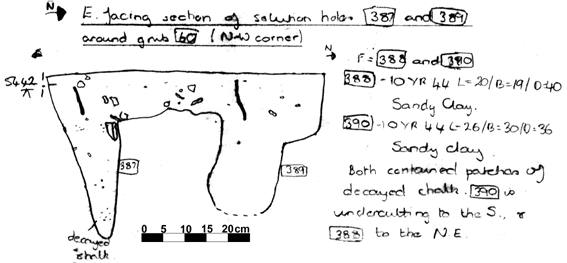 N E. facing section of solution holes 387 and 389
around grub 60 (N-W corner)
S N
54.42
387
389
decayed
chalk
0 5 10 15 20cm
F = 388 and 390
388 - 10 YR 44 L=20/B=19/D=40
Sandy Clay.
390 - 10 YR 44 L=26/B=30/D=36
Sandy clay
Both contained patches of
decayed chalk. 390 is
undercutting to the S., &
388 to the N.E.